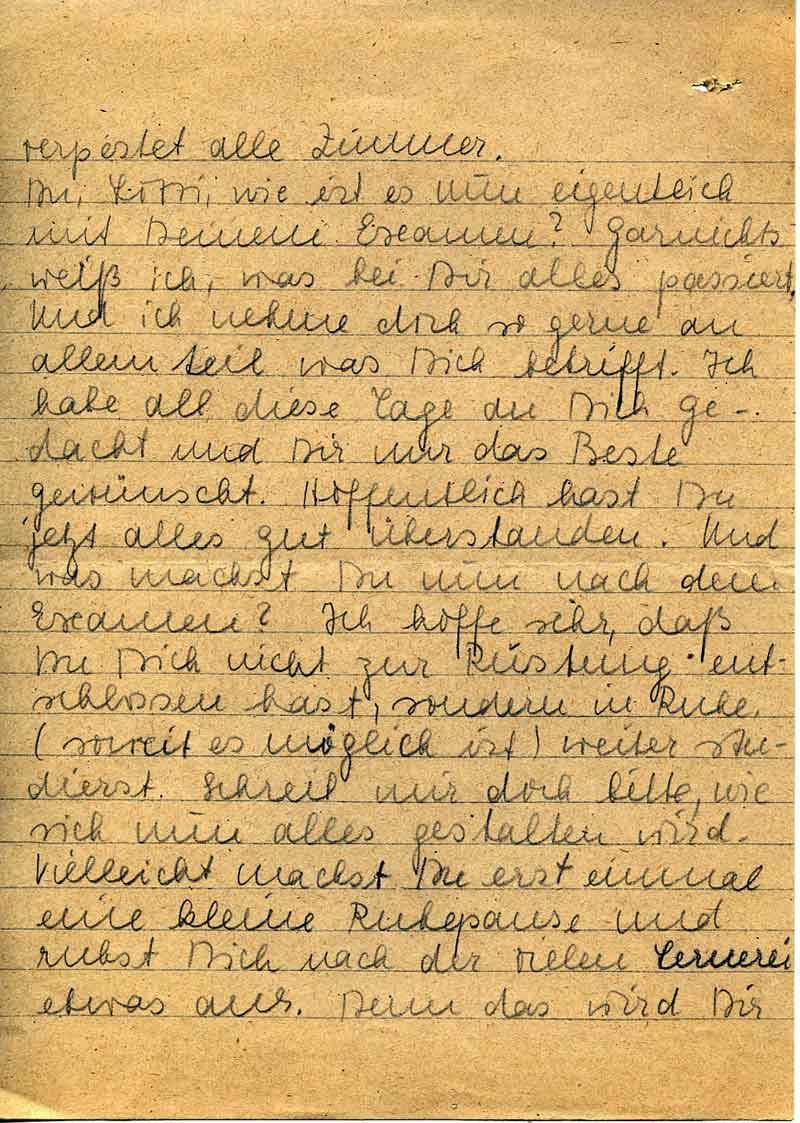 verpestet alle Zimmer.
Du, Lotti, wie ist es nun eigentlich
mit Deinem Examen? Garnichts
weiß ich, was bei Dir alles passiert.
Und ich nehme doch so gerne an
allem teil was Dich betrifft. Ich
habe all diese Tage an Dich ge-
dacht und Dir nur das Beste
gewünscht. Hoffentlich hast Du
jetzt alles gut überstanden. Und
was machst Du nun nach dem
Examen? Ich hoffe sehr, daß
Du Dich nicht zur Rüstung ent-
schlossen hast, sondern in Ruhe
(soweit es möglich ist) weiter stu-
dierst. Schreib mir doch bitte, wie
sich nun alles gestalten wird.
Vielleicht machst Du erst einmal
eine kleine Ruhepause und
ruhst Dich nach der vielen Lernerei
etwas aus. Denn das wird Dir